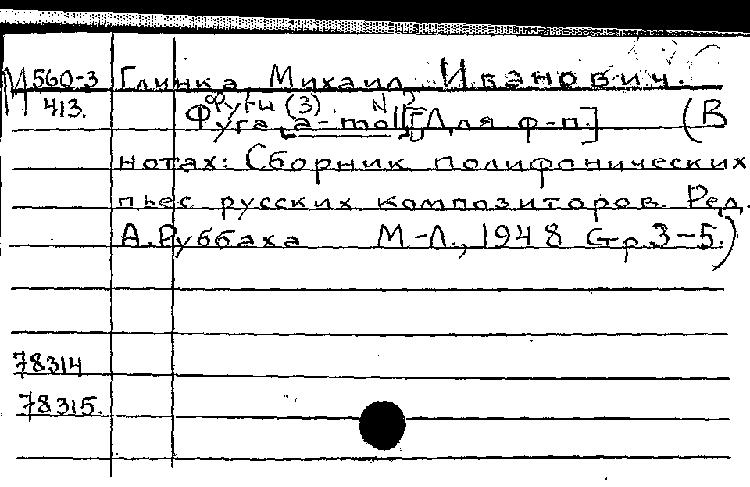 М 560-3 Глинка, Михаил Иванович.
413.
Фуги (3) N 2
Фуга a-moll [Для ф-п.] (В
нотах: Сборник полифонических
пьес русских композиторов. Ред.
А.Руббаха М-Л., 1948 Стр.3-5.)
78314
78315.